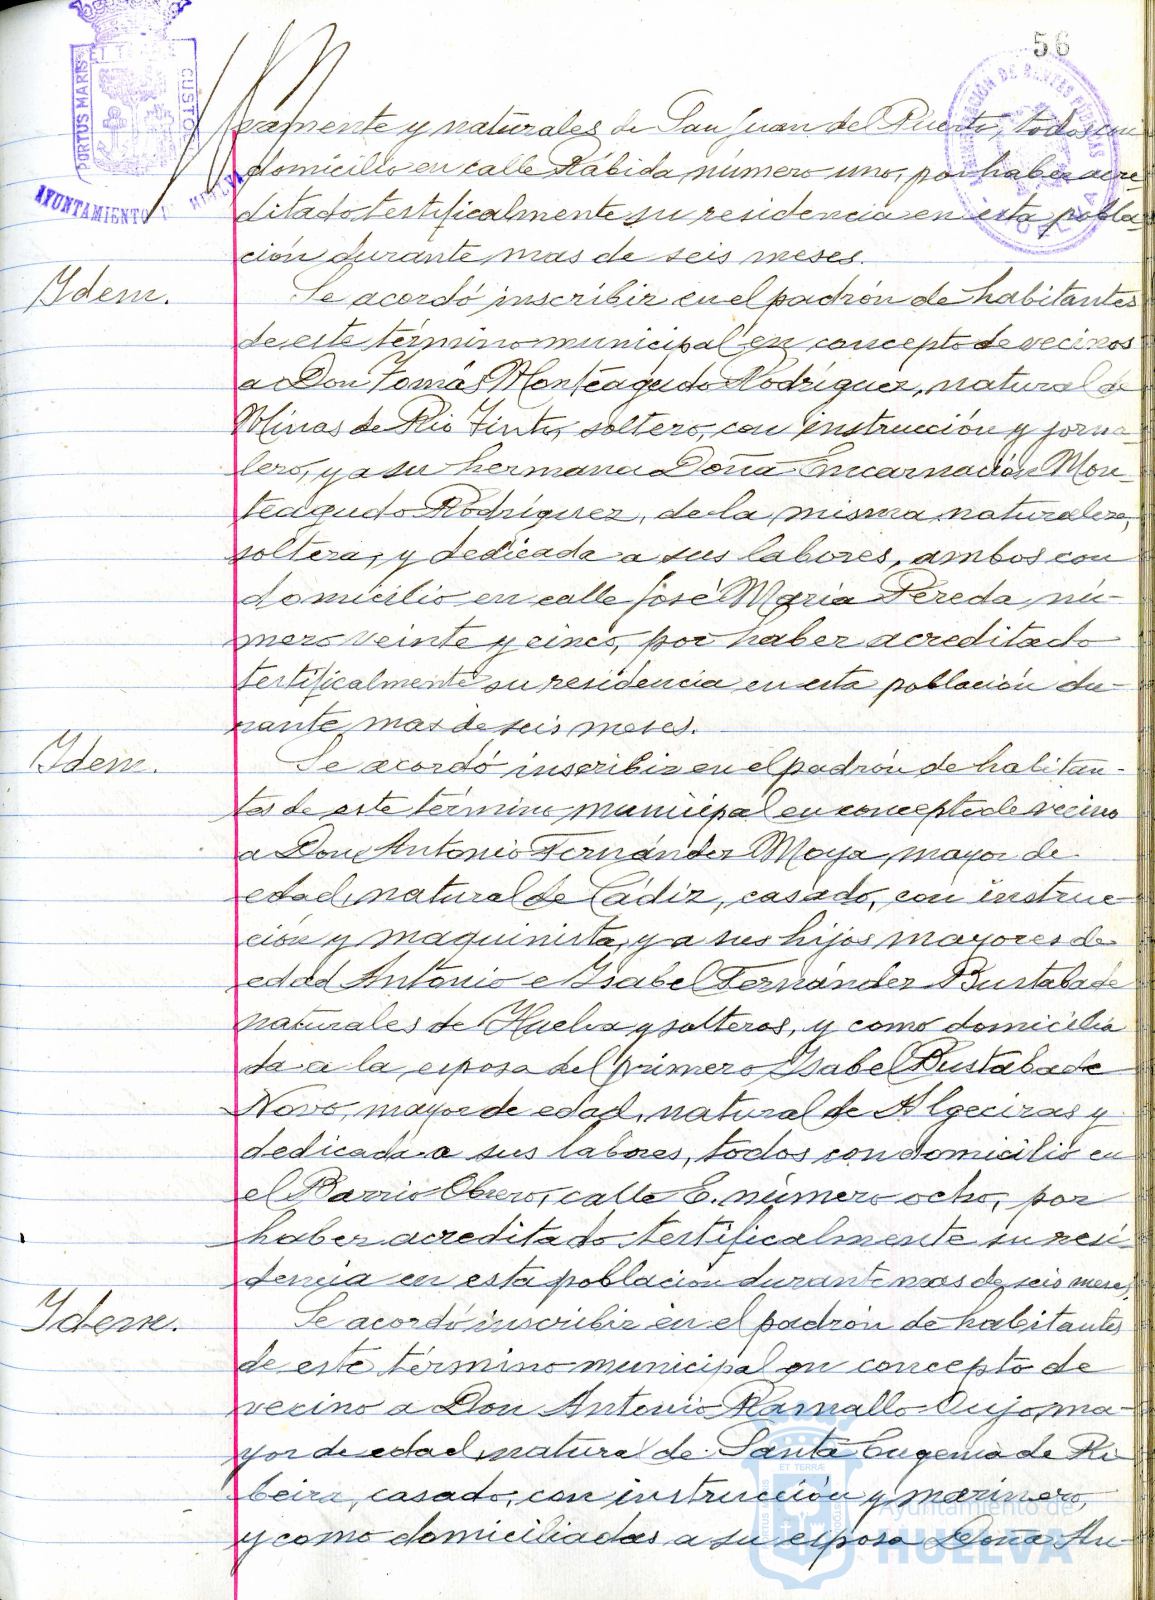 56
PORTUS MARIS ET TERRÆ CUSTODIA
AYUNTAMIENTO DE HUELVA
vamente y naturales de San Juan del Puerto, todos con
domicilio en calle Rábida número uno, por haber acre-
ditado testificalmente su residencia en esta pobla-
ción durante mas de seis meses.
Idem.
Se acordó inscribir en el padrón de habitantes
de este término municipal en concepto de vecinos
a Don Tomás Monteagudo Rodríguez, natural de
Minas de Rio Tinto, soltero, con instrucción y jorna-
lero, y a su hermana Doña Encarnación Mon-
teagudo Rodríguez, de la misma naturaleza,
soltera, y dedicada a sus labores, ambos con
domicilio en calle José María Pereda nú-
mero veinte y cinco, por haber acreditado
testificalmente su residencia en esta población du-
rante mas de seis meses.
Idem.
Se acordó inscribir en el padrón de habitan-
tes de este término municipal en concepto de vecino
a Don Antonio Fernández Moya, mayor de
edad, natural de Cádiz, casado, con instruc-
ción y maquinista, y a sus hijos mayores de
edad Antonio e Isabel Fernández Bustabade
naturales de Huelva y solteros, y como domicilia
da a la esposa del primero Isabel Bustabade
Novo, mayor de edad, natural de Algeciras y
dedicada a sus labores, todos con domicilio en
el Barrio Obrero, calle E. número ocho, por
haber acreditado testificalmente su resi-
dencia en esta población durante mas de seis meses.
Idem.
Se acordó inscribir en el padrón de habitantes
de este término municipal en concepto de
vecino a Don Antonio Ramallo Oujo, ma-
yor de edad, natural de Santa Eugenia de Ri
beira, casado, con instrucción y marinero,
y como domiciliadas a su esposa Doña Au-
Ayuntamiento de
HUELVA